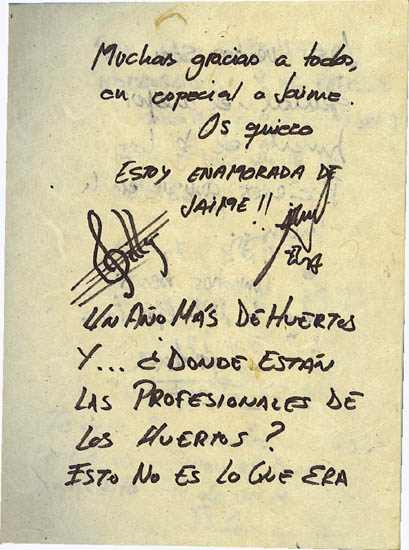 Muchas gracias a todos,
en especial a Jaime.
Os quiero
ESTOY ENAMORADA DE
JAIME!!
UN AÑO MÁS DE HUERTOS
Y... ¿DONDE ESTÁN
LAS PROFESIONALES DE
LOS HUERTOS?
ESTO NO ES LO QUE ERA